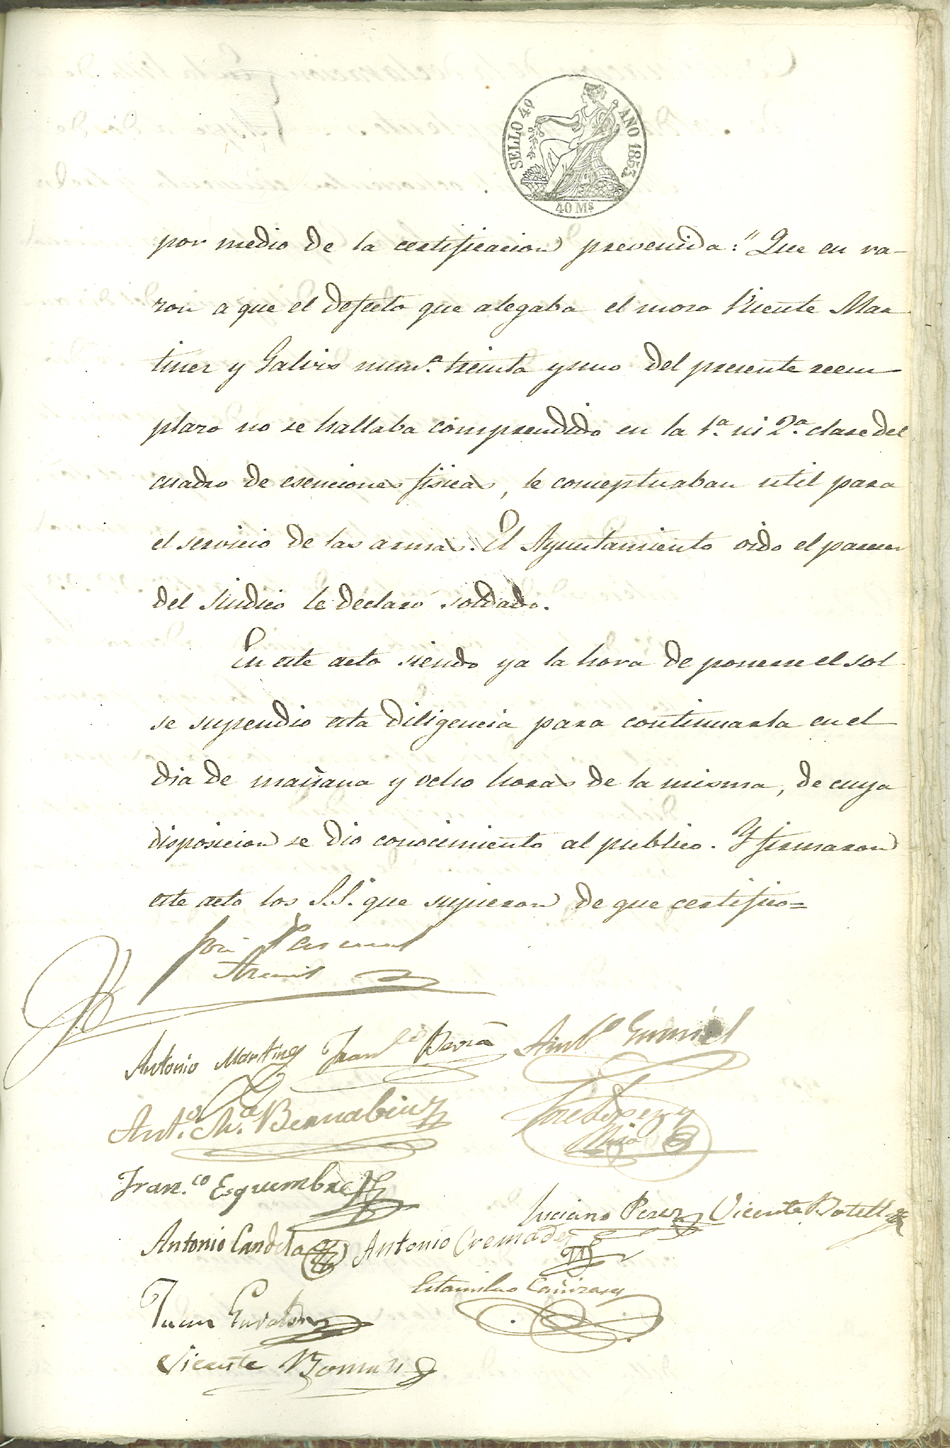 SELLO 4º AÑO 1853
40 Ms
por medio de la certificacion prevenida: "Que en ra-
zon a que el defecto que alegaba el mozo Vicente Mar
tinez y Galvis num.º treinta y uno del presente reem-
plazo no se hallaba comprendido en la 1.ª ni 2.ª clase del
cuadro de esenciones fisicas, le conceptuaban util para
el servicio de las armas. El Ayuntamiento oido el parecer
del Sindico le declaró soldado.
En este acto siendo ya la hora de ponerse el sol
se supendio esta diligencia para continuarla en el
dia de mañana y ocho horas de la misma, de cuya
disposicion se dio conocimiento al publico. Y firmaron
este acto los S.S. que supieron de que certifico=
José Pascual
Antonio Martinez Fran.co
Ant.º M.ª Bernabeu
José Lopez y
Fran.co Esquembre
Luciano Perez Vicente Botella
Antonio Candela Antonio Cremades
Estanislao Cañizares
Juan
Vicente Roman